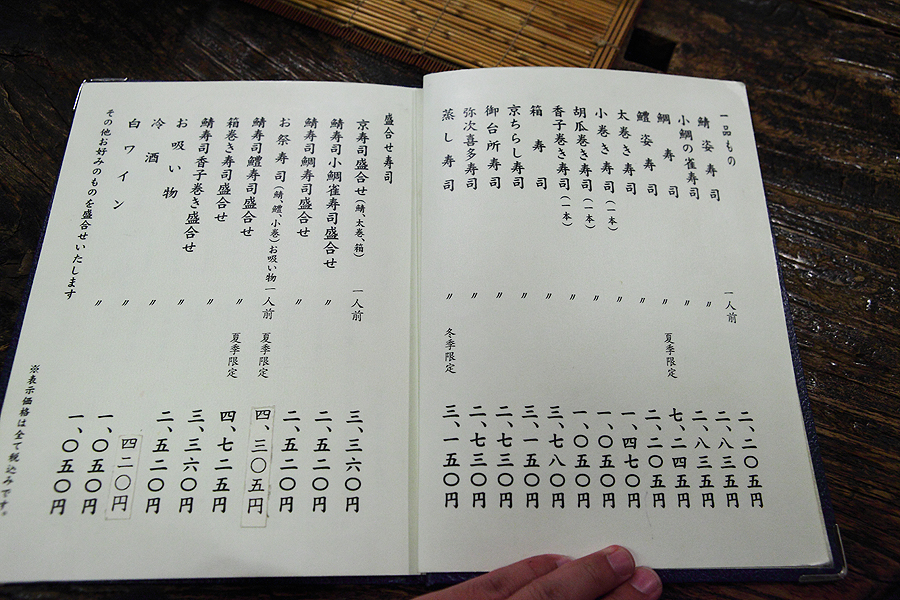 一品もの
鯖姿寿司 一人前 二、二〇五円
小鯛の雀寿司 〃 二、八三五円
鯛寿司 〃 二、八三五円
鱧姿寿司 〃 夏季限定 七、二四五円
太巻き寿司 〃 二、二〇五円
小巻き寿司(一本) 〃 一、四七〇円
胡瓜巻き寿司(一本) 〃 一、〇五〇円
香子巻き寿司(一本) 〃 一、〇五〇円
箱寿司 〃 三、七八〇円
京ちらし寿司 〃 三、一五〇円
御台所寿司 〃 二、七三〇円
弥次喜多寿司 〃 二、七三〇円
蒸し寿司 〃 冬季限定 三、一五〇円
盛合せ寿司
京寿司盛合せ(鯖、太巻、箱) 一人前 三、三六〇円
鯖寿司小鯛雀寿司盛合せ 〃 二、五二〇円
鯖寿司鯛寿司盛合せ 〃 二、五二〇円
お祭寿司(鯖、鱧、小巻)お吸い物 一人前 夏季限定 四、三〇五円
鯖寿司鱧寿司盛合せ 〃 夏季限定 四、七二五円
箱巻き寿司盛合せ 〃 三、三六〇円
鯖寿司香子巻き盛合せ 〃 二、五二〇円
お吸い物 〃 四二〇円
冷酒 〃 一、〇五〇円
白ワイン 〃 一、〇五〇円
その他お好みのものを盛合せいたします
※表示価格は全て税込みです。